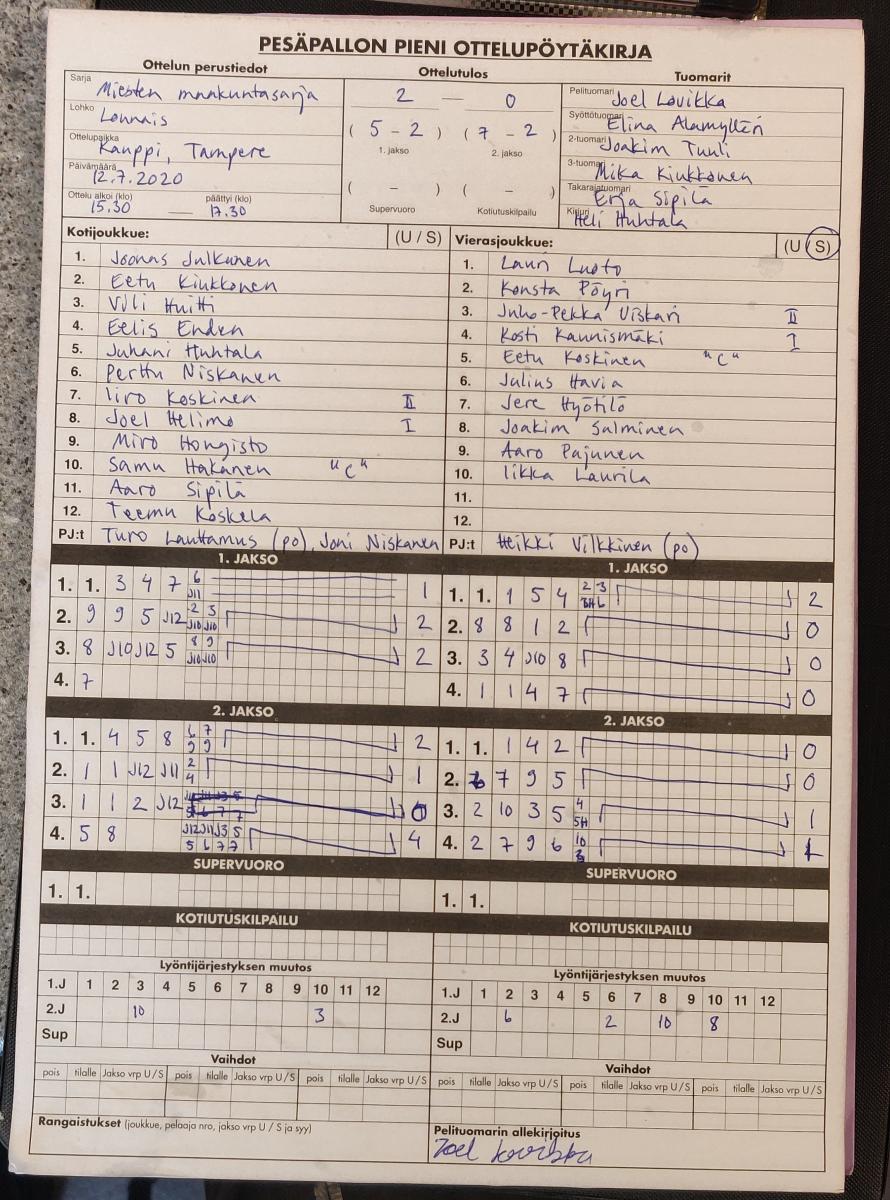 PESÄPALLON PIENI OTTELUPÖYTÄKIRJA
Ottelun perustiedot
Sarja
Miesten maakuntasarja
Lohko
Lounais
Ottelupaikka
Kauppi, Tampere
Päivämäärä
12.7.2020
Ottelu alkoi (klo) päättyi (klo)
15.30 — 17.30
Ottelutulos
2 — 0
( 5 - 2 ) ( 7 - 2 )
1. jakso 2. jakso
( - ) ( - )
Supervuoro Kotiutuskilpailu
Tuomarit
Pelituomari Joel Lovikka
Syöttötuomari Elina Alamylleri
2-tuomari Joakim Tuuli
3-tuomari Mika Kiukkonen
Takarajatuomari Erja Sipilä
Kirjuri Heli Huhtala
Kotijoukkue: (U / S)
1. Joonas Julkunen
2. Eetu Kiukkonen
3. Vili Huitti
4. Eelis Enden
5. Juhani Huhtala
6. Perttu Niskanen
7. Iiro Koskinen II
8. Joel Helimo I
9. Miro Hongisto
10. Samu Hakanen "C"
11. Aaro Sipilä
12. Teemu Koskela
PJ:t Turo Lauttamus (po), Joni Niskanen
Vierasjoukkue: (U / S)
1. Lauri Luoto
2. Konsta Pöyri
3. Juho-Pekka Uiskari II
4. Kosti Kannismäki I
5. Eetu Koskinen "C"
6. Julius Havia
7. Jere Hyötilö
8. Joakim Salminen
9. Aaro Pajunen
10. Iikka Laurila
11.
12.
PJ:t Heikki Vilkkinen (po)
1. JAKSO
1. 1. 3 4 7 6 J11 1
2. 9 9 5 J12 2 3 J10 J10 2
3. 8 J10 J12 5 8 9 J10 J10 2
4. 7
2. JAKSO
1. 1. 4 5 8 6 7 9 9 2
2. 1 1 J12 J11 2 4 1
3. 1 1 2 J12 0
4. 5 8 J12 J11 J3 5 5 6 7 7 4
SUPERVUORO
1. 1.
KOTIUTUSKILPAILU
Lyöntijärjestyksen muutos
1.J 1 2 3 4 5 6 7 8 9 10 11 12
2.J 10 3
Sup
Vaihdot
pois tilalle Jakso vrp U / S pois tilalle Jakso vrp U / S pois tilalle Jakso vrp U / S
Rangaistukset (joukkue, pelaaja nro, jakso vrp U / S ja syy)
1. JAKSO
1. 1. 1 5 4 2 3 6 2
2. 8 8 1 2 0
3. 3 4 J10 8 0
4. 1 1 4 7 0
2. JAKSO
1. 1. 1 4 2 0
2. 7 9 5 0
3. 2 10 3 5 4 5H 1
4. 2 7 9 6 10 1
SUPERVUORO
1. 1.
KOTIUTUSKILPAILU
Lyöntijärjestyksen muutos
1.J 1 2 3 4 5 6 7 8 9 10 11 12
2.J 6 2 10 8
Sup
Vaihdot
pois tilalle Jakso vrp U / S pois tilalle Jakso vrp U / S pois tilalle Jakso vrp U / S
Pelituomarin allekirjoitus
Joel Lovikka